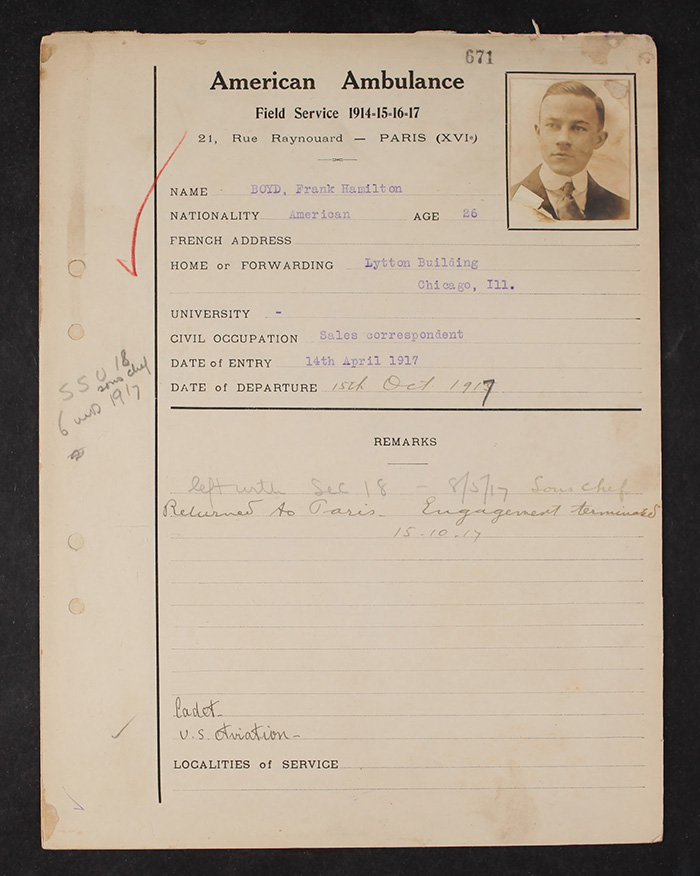 671
American Ambulance
Field Service 1914-15-16-17
21, Rue Raynouard — PARIS (XVIe)
NAME BOYD, Frank Hamilton
NATIONALITY American AGE 26
FRENCH ADDRESS
HOME or FORWARDING Lytton Building
Chicago, Ill.
UNIVERSITY -
CIVIL OCCUPATION Sales correspondent
DATE of ENTRY 14th April 1917
DATE of DEPARTURE 15th Oct 1917
SSU 18
sous chef
6 mos 1917
REMARKS
left with Sec 18 - 8/5/17 Sous chef
Returned to Paris- Engagement terminated
15.10.17
Cadet-
U.S. Aviation-
LOCALITIES of SERVICE